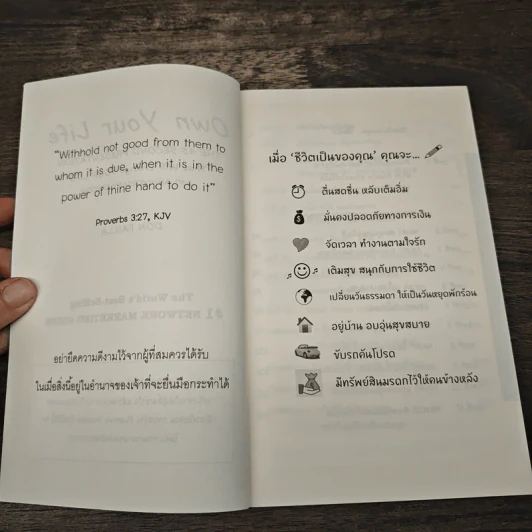 "Withhold not good from them to
whom it is due, when it is in the
power of thine hand to do it"
Proverbs 3:27, KJV
อย่ายึดความดีงามไว้จากผู้ที่สมควรได้รับ
ในเมื่อสิ่งนี้อยู่ในอำนาจของเจ้าที่จะยื่นมือกระทำได้
เมื่อ 'ชีวิตเป็นของคุณ' คุณจะ...
ตื่นสดชื่น หลับเต็มอิ่ม
มั่นคงปลอดภัยทางการเงิน
จัดเวลา ทำงานตามใจรัก
เติมสุข สนุกกับการใช้ชีวิต
เปลี่ยนวันธรรมดา ให้เป็นวันหยุดพักร้อน
อยู่บ้าน อบอุ่นสุขสบาย
ขับรถคันโปรด
มีทรัพย์สินมรดกไว้ให้คนข้างหลัง